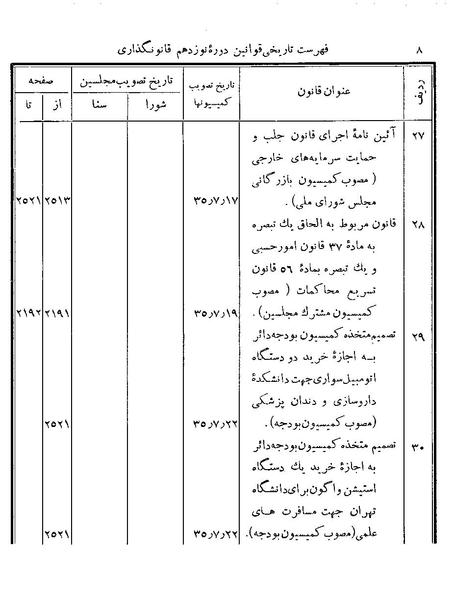 ۸ فهرست تاریخی قوانین دورهٔ نوزدهم قانونگذاری
ردیف عنوان قانون تاریخ تصویب کمیسیونها تاریخ تصویب مجلسین صفحه
شورا سنا از تا
۲۷ آئین نامهٔ اجرای قانون جلب و
حمایت سرمایه‌های خارجی
( مصوب کمیسیون بازرگانی
مجلس شورای ملی ) . ۳۵٫۷٫۱۷ ۲۵۱۳ ۲۵۲۱
۲۸ قانون مربوط به الحاق یك تبصره
به مادهٔ ۳۷ قانون امورحسبی
و یك تبصره بمادهٔ ۵۶ قانون
تسریع محاکمات ( مصوب
کمیسیون مشترك مجلسین ) . ۳۵٫۷٫۱۹ ۲۱۹۱ ۲۱۹۲
۲۹ تصمیم متخذه کمیسیون بودجه دائر
به اجازهٔ خرید دو دستگاه
اتومبیل سواری جهت دانشکدهٔ
داروسازی و دندان پزشکی
(مصوب کمیسیون بودجه) . ۳۵٫۷٫۲۲ ۲۵۲۱
۳۰ تصمیم متخذه کمیسیون بودجه دائر
به اجازهٔ خرید یك دستگاه
استیشن واگون برای دانشگاه
تهران جهت مسافرت های
علمی (مصوب کمیسیون بودجه) . ۳۵٫۷٫۲۲ ۲۵۲۱